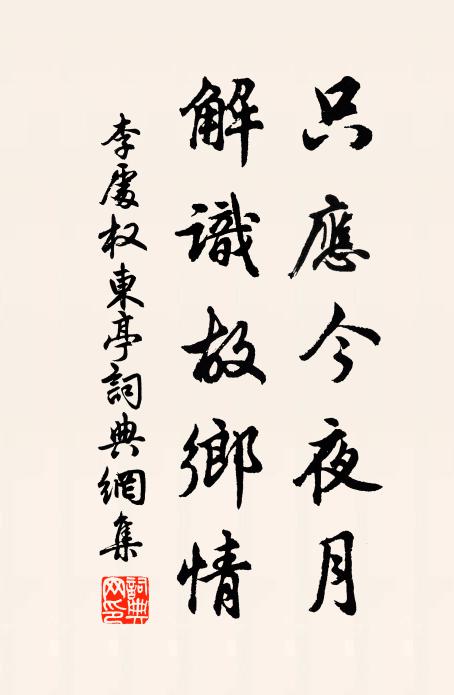 只應今夜月
解識故鄉情
李處权東亭詞典網集
詞典網印